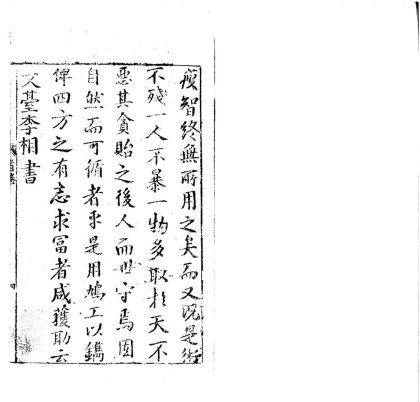 瘦智終無所用之矣而又況是術
不殘一人不暴一物多取於天不
惡其貪貽之後人而世守焉固
自然而可循者乎是用鳩工以鐫
俾四方之有志求冨者咸獲助云
文臺李相書